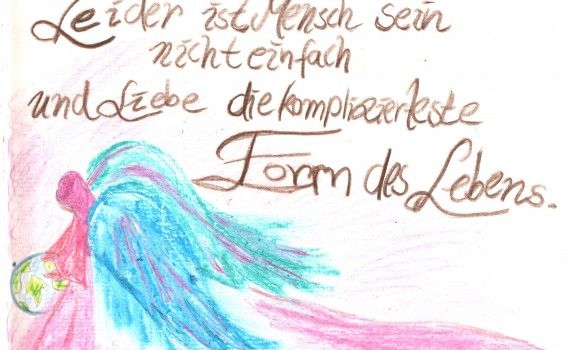 Leider ist Mensch sein
nicht einfach
und Liebe die komplizierteste
Form des Lebens.